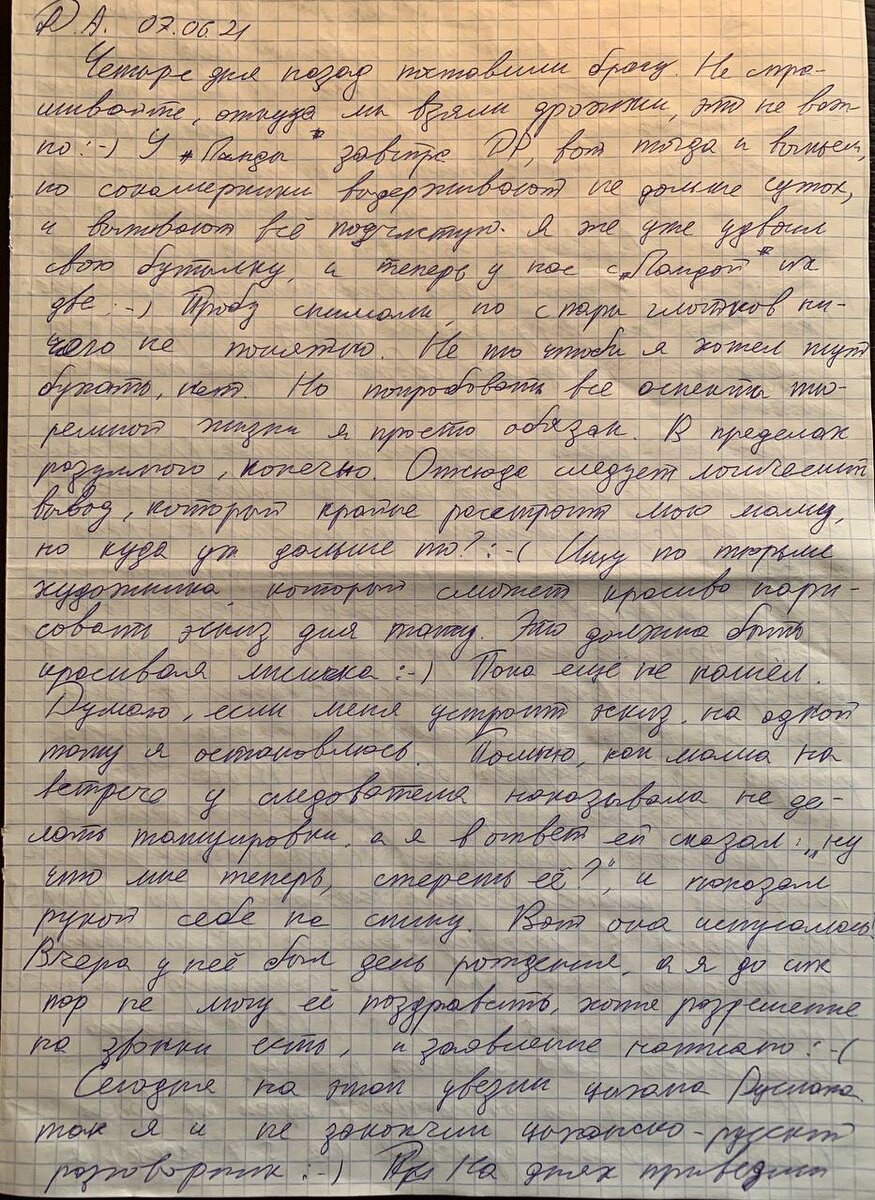 Д.А. 07.06.21
Четыре дня назад поставили брагу. Не спра-
шивайте, откуда мы взяли дрожжи, это не важ-
но :-) У "Панды" завтра ДР, вот тогда и выпьем,
но сокамерники выдерживают не дольше суток,
и выпивают всё подчистую. Я же уже удвоил
свою бутылку, и теперь у нас с "Пандой" их
две :-) Пробу снимали, но с пары глотков ни-
чего не понятно. Не то чтобы я хотел тут
бухать, нет. Но попробовать все аспекты тю-
ремной жизни я просто обязан. В пределах
разумного, конечно. Отсюда следует логический
вывод, который крайне расстроит мою маму,
но куда уж дальше то? :-( Ищу по тюрьме
художника который сможет красиво нари-
совать эскиз для тату. Это должна быть
красивая лисичка :-) Пока ещё не нашёл.
Думаю, если меня устроит эскиз, на одной
тату я остановлюсь. Помню, как мама на
встрече у следователя наказывала не де-
лать татуировки, а я в ответ ей сказал: „ну
что мне теперь, стереть её?", и показал
рукой себе на спину. Вот она испугалась!
Вчера у неё был день рождения, а я до сих
пор не могу её поздравить, хотя разрешение
на звонки есть, и заявление написано :-(
Сегодня на этап увезли цыгана Руслана
так я и не закончил цыганско-русский
разговорник :-) На днях привезли